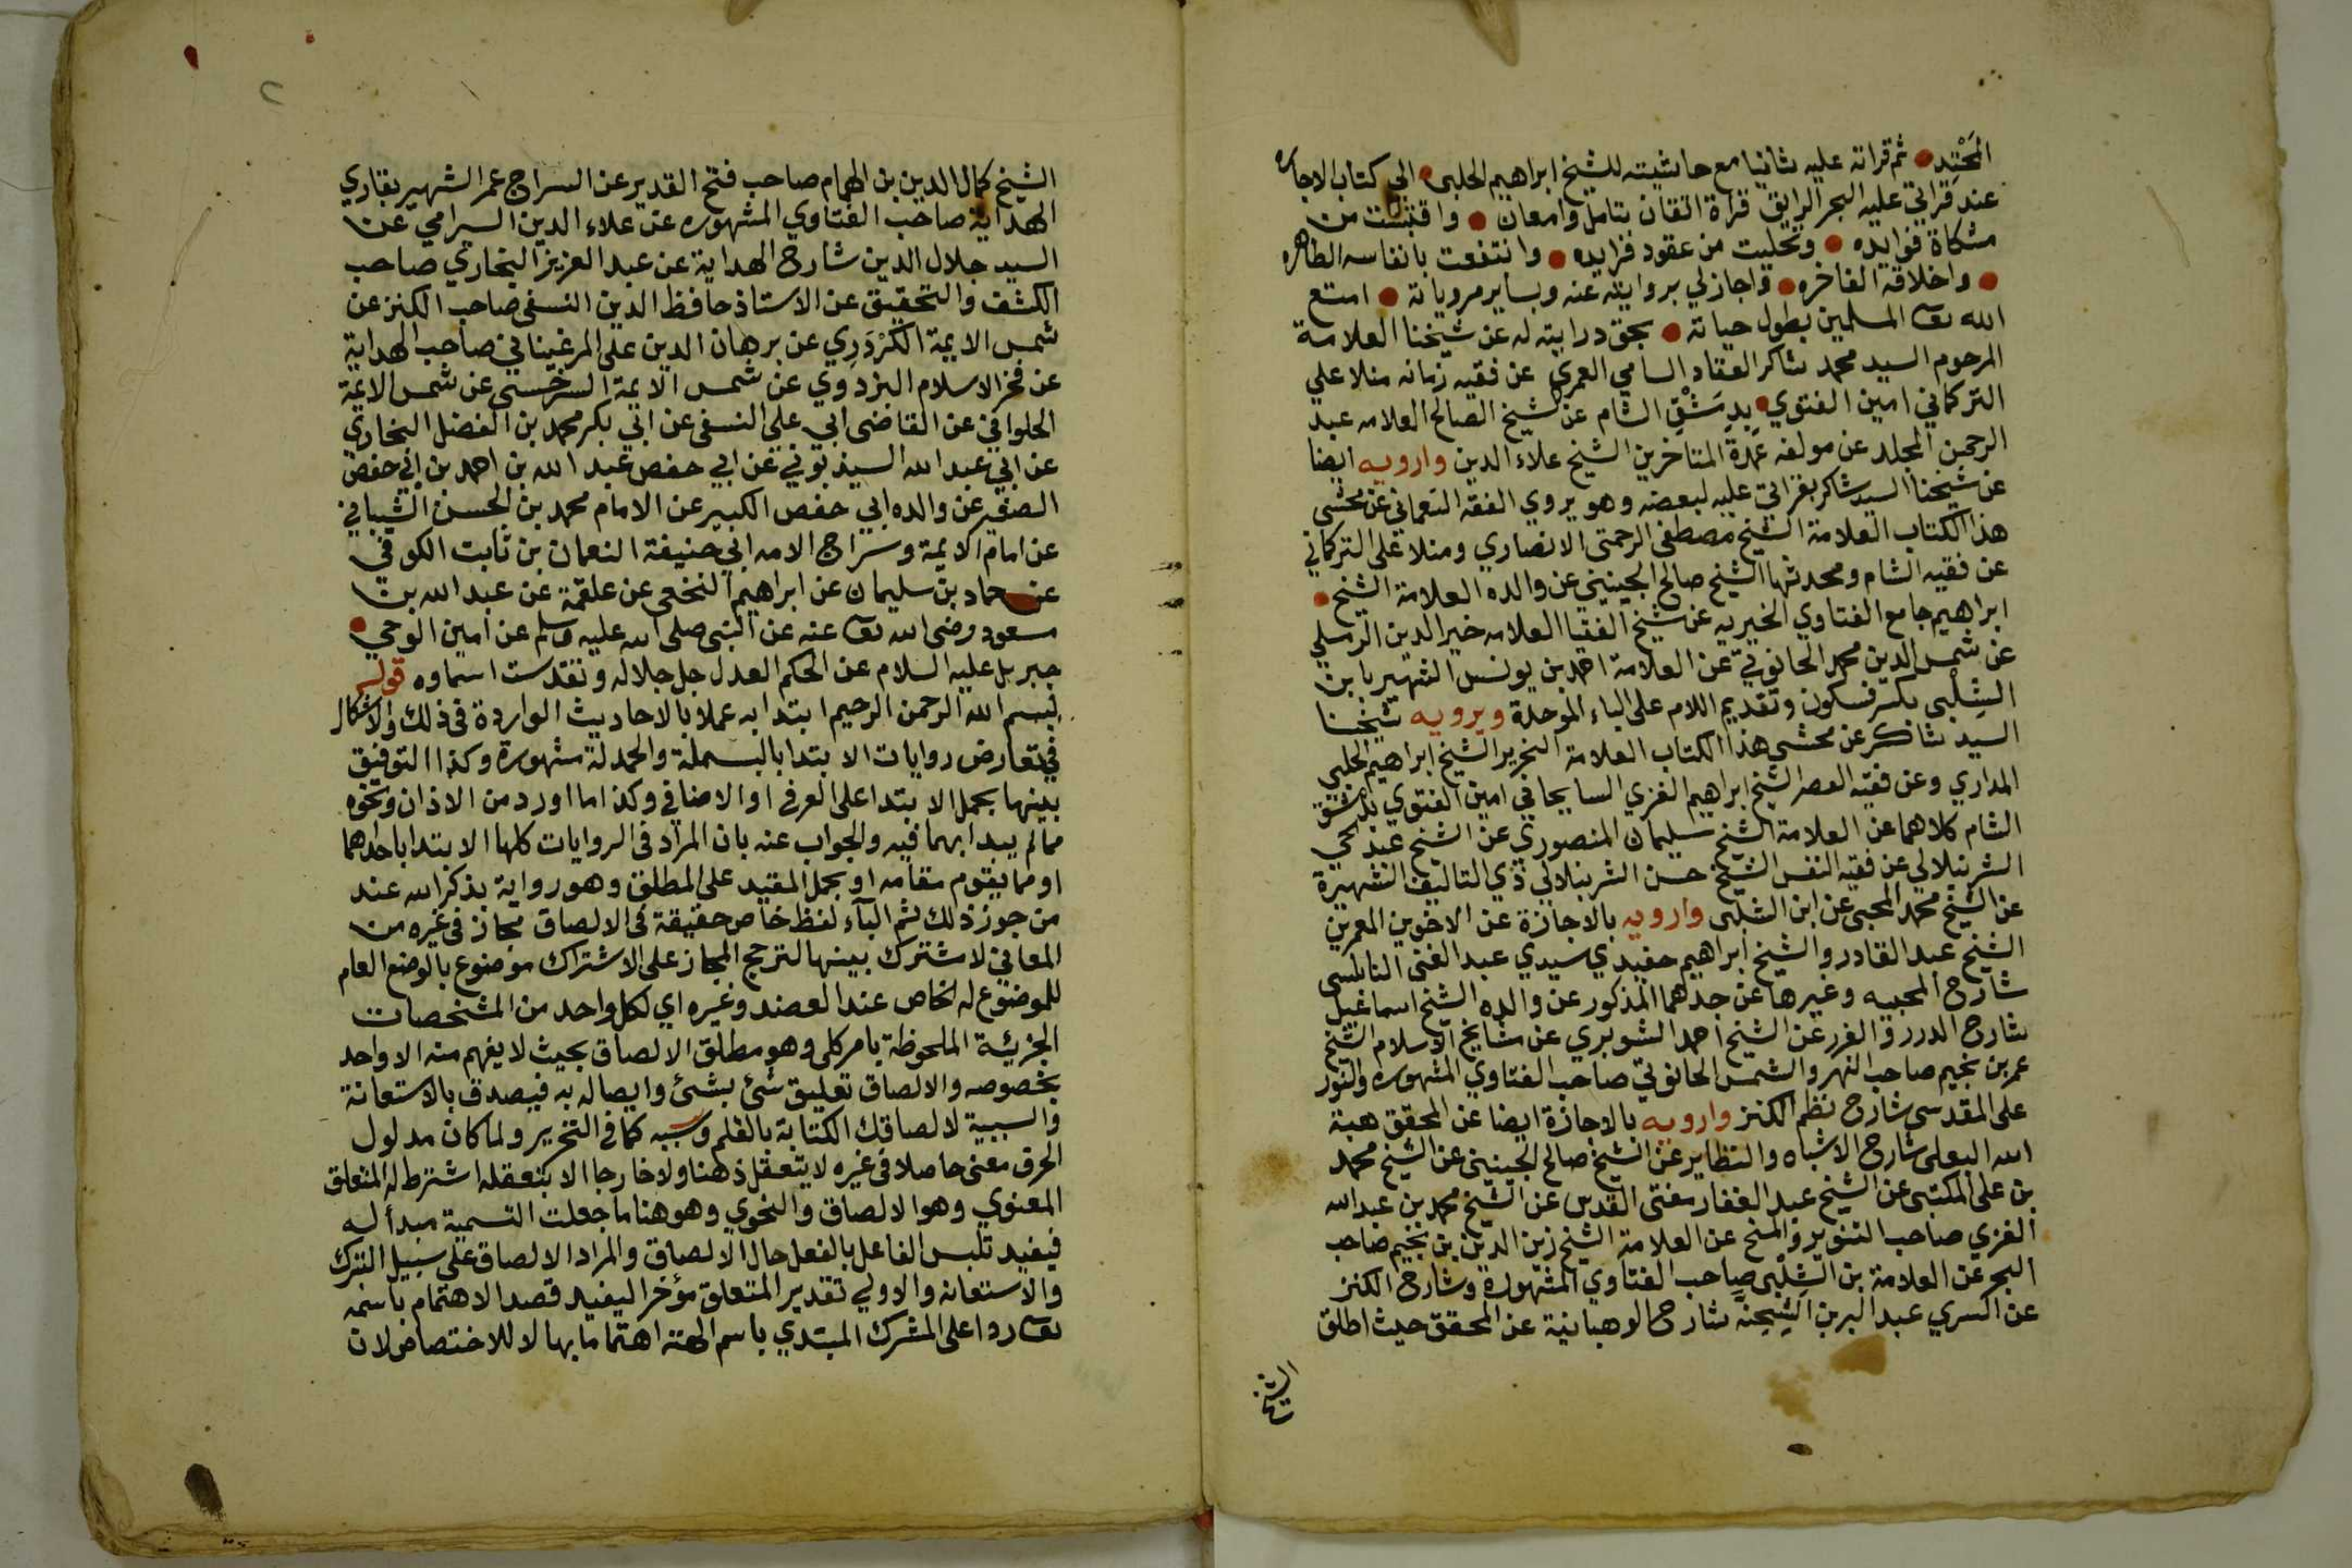 المَحْتِد ثم قراته عليه ثانيا مع حاشيته للشيخ ابراهيم الحلبي الي كتاب الاجاره
عند قراتي عليه البحر الرايق قراة اتقان بتامل وامعان واقتبست من
مشكاة فوايده وتحليت من عقود فرايده وانتفعت بانفاسه الطاهره
واخلاقه الفاخره واجاز لي بروايته عنه وبساير مروياته امتع
الله تعا المسلمين بطول حياته بحق درايته له عن شيخنا العلامة
المرحوم السيد محمد شاكر العقاد السالمي العمري عن فقيه زمانه منلا علي
التركماني امين الفتوي بدِمَشْقِ الشام عن الشيخ الصالح العلامه عبد
الرحمن المجلد عن مولفه عمدة المتاخرين الشيخ علاء الدين وارويه ايضا
عن شيخنا السيد شاكر بقراتي عليه لبعضه وهو يروي الفقه النعماني عن محشي
هذا الكتاب العلامة الشيخ مصطفى الرحمتي الانصاري ومنلا علي التركماني
عن فقيه الشام ومحدثها الشيخ صالح الجينيني عن والده العلامة الشيخ
ابراهيم جامع الفتاوي الخيريه عن شيخ الفتيا العلامه خير الدين الرملي
عن شمس الدين محمد الحانوتي عن العلامة احمد بن يونس الشهير بابن
الشِلْبي بكسر فسكون وتقديم اللام على الباء الموحدة ويرويه شيخنا
السيد شاكر عن محشي هذا الكتاب العلامة النحرير الشيخ ابراهيم الحلبي
المداري وعن فقيه العصر الشيخ ابراهيم الغزي السايحاني امين الفتوي بدمشق
الشام كلاهما عن العلامة الشيخ سليمان المنصوري عن الشيخ عبد الحي
الشرنبلالي عن فقيه النفس الشيخ حسن الشرنبلالي ذي التاليف الشهيرة
عن الشيخ محمد المحبي عن ابن الشلبي وارويه بالاجازة عن الاخوين المعمرين
الشيخ عبد القادر والشيخ ابراهيم حفيدي سيدي عبد الغني النابلسي
شارح المحبيه وغيرها عن جدهما المذكور عن والده الشيخ اسماعيل
شارح الدرر والغرر عن الشيخ احمد الشوبري عن مشايخ الاسلام الشيخ
عمر بن نجيم صاحب النهر والشمس الحانوتي صاحب الفتاوي المشهوره والنور
على المقدسي شارح نظم الكنز وارويه بالاجازة ايضا عن المحقق هبة
الله البعلي شارح الاشباه والنظاير عن الشيخ صالح الجينيني عن الشيخ محمد
بن علي المكتبي عن الشيخ عبد الغفار مفتي القدس عن الشيخ محمد بن عبد الله
الغزي صاحب التنوير والمنح عن العلامة الشيخ زين الدين بن نجيم صاحب
البحر عن العلامة بن الشِلْبي صاحب الفتاوي المشهوره وشارح الكنز
عن السري عبد البر بن الشِحْنَه شارح الوهبانية عن المحقق حيث اطلق
الشيخ
الشيخ كمال الدين بن الهمام صاحب فتح القدير عن السراج عمر الشهير بقاري
الهداية صاحب الفتاوي المشهوره عن علاء الدين السيرامي عن
السيد جلال الدين شارح الهداية عن عبد العزيز البخاري صاحب
الكشف والتحقيق عن الاستاذ حافظ الدين النسفي صاحب الكنز عن
شمس الايمة الكَرْدَرِي عن برهان الدين علي المرغيناني صاحب الهداية
عن فخر الاسلام البزدوي عن شمس الايمة السرخسي عن شمس الايمة
الحلواني عن القاضي ابي علي النسفي عن ابي بكر محمد بن الفضل البخاري
عن ابي عبد الله السبذموني عن ابي حفص عبد الله بن احمد بن ابي حفص
الصغير عن والده ابي حفص الكبير عن الامام محمد بن الحسن الشيباني
عن امام الايمة وسراج الامه ابي حنيفة النعمان بن ثابت الكوفي
عن حماد بن سليمان عن ابراهيم النخعي عن علقمة عن عبد الله بن
مسعود رضى الله تعا عنه عن النبي صلى الله عليه وسلم عن امين الوحي
جبريل عليه السلام عن الحكم العدل جل جلاله وتقدست اسماوه قوله
بسم الله الرحمن الرحيم ابتدا به عملا بالاحاديث الواردة في ذلك والاشكال
في تعارض روايات الابتدا بالبسملة والحمدلة مشهورة وكذا التوفيق
بينها بحمل الابتدا على العرفي او الاضافي وكذا ما اورد من الاذان ونحوه
مما لم يبدا بهما فيه والجواب عنه بان المراد في الروايات كلها الابتدا باحداهما
او مما يقوم مقامه او بحمل المقيد على المطلق وهو رواية بذكر الله عند
من جوز ذلك ثم الباء لفظ خاص حقيقة في الالصاق مجاز في غيره من
المعاني لا مشترك بينها لترجح المجاز على الاشتراك موضوع بالوضع العام
للموضوع له الخاص عند العضد وغيره اي لكل واحد من المشخصات
الجزئية الملحوظة بامر كلي وهو مطلق الالصاق بحيث لا يفهم منه الا واحد
بخصوصه والالصاق تعليق شئ بشئ وايصاله به فيصدق بالاستعانة
والسببية لالصاقك الكتابة بالقلم وسببه كما في التحرير ولما كان مدلول
الحرف معنى حاصلا في غيره لا يتعقل ذهنا ولا خارجا الا بتعقله اشترط له المتعلق
المعنوي وهو الالصاق والنحوي وهو هنا ما جعلت التسمية مبدأ له
فيفيد تلبس الفاعل بالفعل حال الالصاق والمراد الالصاق على سبيل التبرك
والاستعانه والاولي تقدير المتعلق مؤخرا ليفيد قصد الاهتمام باسمه
تعا ردا على المشرك المبتدي باسم الهته اهتماما بها لا للاختصاص لان